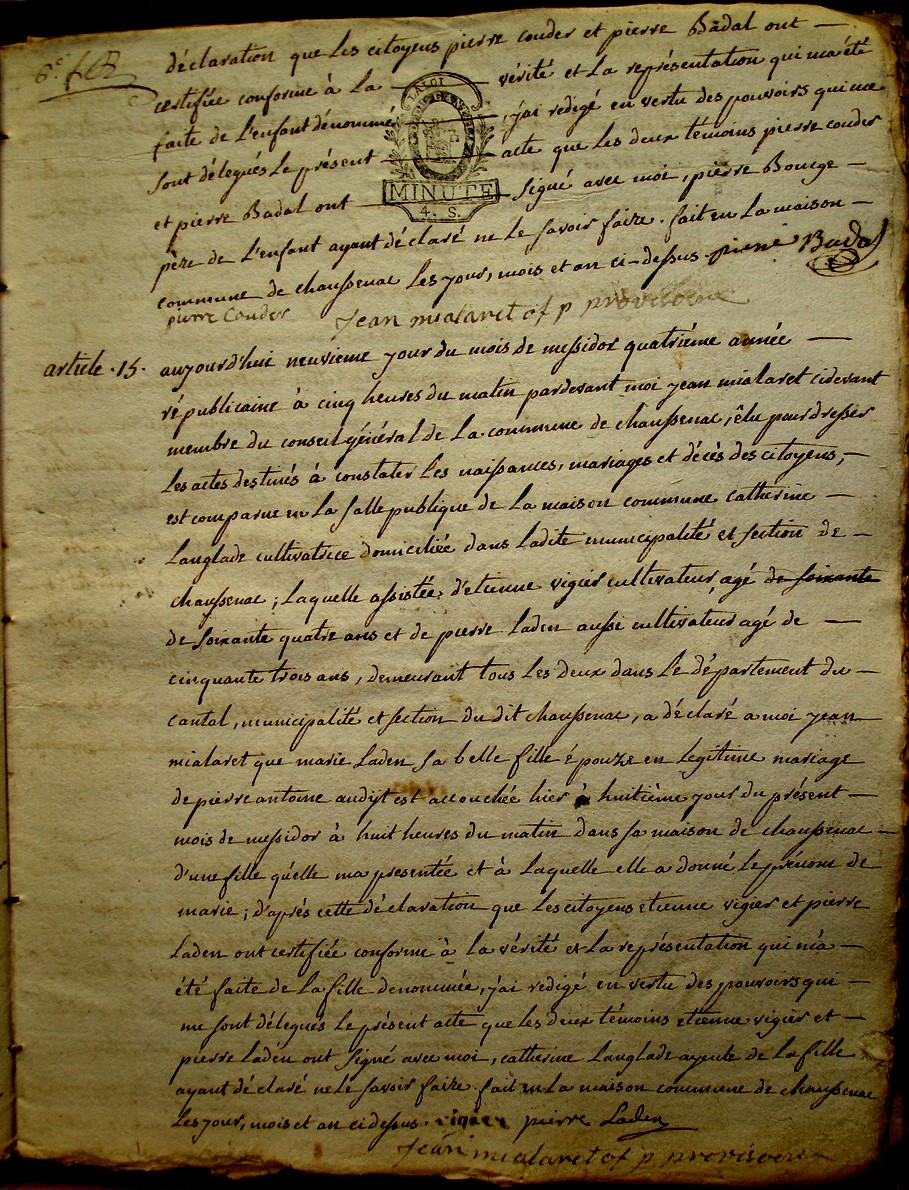 6e.
déclaration que les citoyens pierre couder et pierre Badal ont —
certifiée conforme à la — vérité et la représentation qui m'a été
faite de l'enfant dénommé — , j'ai redigé en vertu des pouvoirs qui me
sont délegués le présent — acte que les deux témoins pierre couder
et pierre Badal ont — signé avec moi, pierre Bouge —
LA LOI
MINUTE
4. S.
père de l'enfant ayant déclaré ne le savoir faire. fait en la maison —
commune de chaussenac les jour, mois et an ci-dessus. pierre Badal
pierre Couder
Jean mialaret of p provisoire
article . 15.
aujourd'hui neuvieme jour du mois de messidor quatriéme année —
républicaine à cinq heures du matin pardevant moi jean mialaret cidevant
membre du conseil général de la commune de chaussenac, élu pour dresser
les actes destinés à constater les naissances, mariages et décès des citoyens, —
est comparue en la salle publique de la maison commune catherine —
Langlade cultivatrice domiciliée dans ladite municipalité et section de —
chaussenac ; laquelle assistée d'etienne vigier cultivateur, agé de soixante
de soixante quatre ans et de pierre laden aussi cultivateur agé de —
cinquante trois ans, demeurant tous les deux dans le département du —
cantal, municipalité et section du dit chaussenac, a déclaré a moi jean
mialaret que marie laden sa belle fille épouze en legitime mariage
de pierre antoine audyt est accouchée hier huitième jour du présent —
mois de messidor à huit heures du matin dans sa maison de chaussenac —
d'une fille qu'elle m'a presentée et à laquelle elle a donné le prénom de
marie ; d'après cette déclaration que les citoyens etienne vigier et pierre
laden ont certifiée conforme à la vérité et la représentation qui m'a —
été faite de la fille denommée, j'ai redigé en vertu des pouvoirs qui —
me sont délegués le présent acte que les deux témoins etienne vigier et —
pierre laden ont signé avec moi, catherine Langlade ayeule de la fille
ayant déclaré ne le savoir faire. fait en la maison commune de chaussenac
les jour, mois et an ci dessus. vigier pierre Laden
Jean mialaret of p provisoire